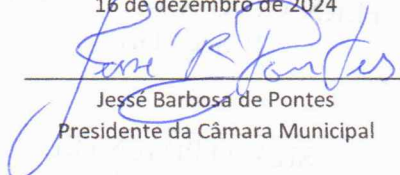 16 de dezembro de 2024
Jessé B Pontes
Jessé Barbosa de Pontes
Presidente da Câmara Municipal